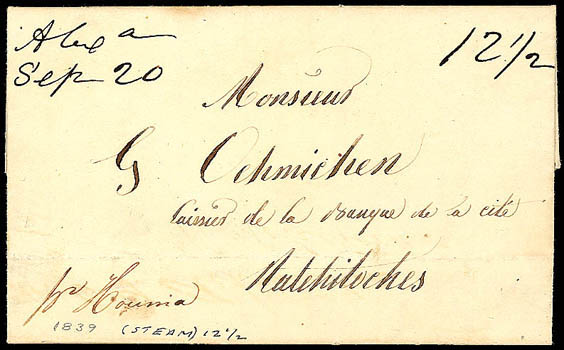 Alexa
Sep 20
12 1/2
Monsieur
G Oehmichen
Caissier de la Banque de la cité
Natchitoches
pr Houma
1839 (STEAM) 12 1/2